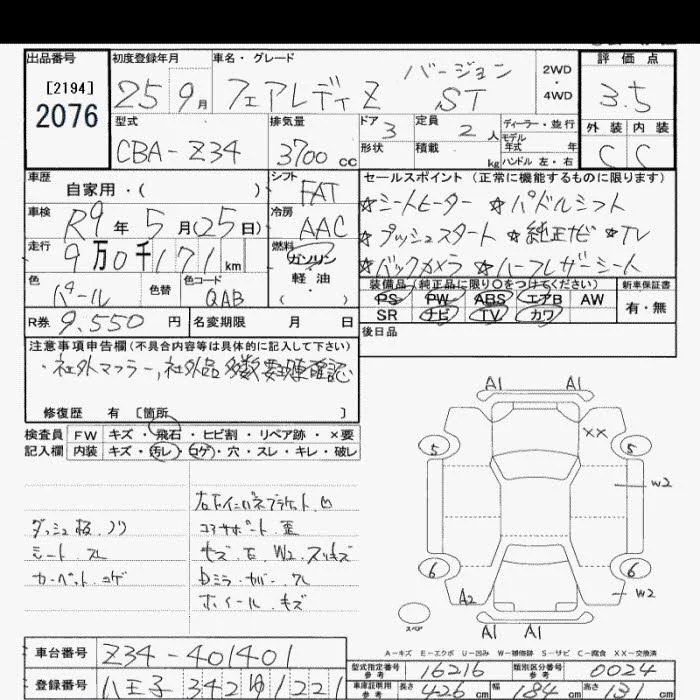 出品番号
[2194]
2076
初度登録年月
25年9月
車名・グレード
フェアレディZ バージョン ST
2WD
・
4WD
評価点
3.5
外装 内装
C C
型式
CBA-Z34
排気量
3700 cc
ドア 3
形状
定員 2 人
積載 kg
ディーラー・並行
モデル年式 年
ハンドル 左・右
車歴
自家用・( )
車検
R9年5月(25日)
走行
9万0千171 km
色
パール
色替
色コード
QAB
シフト
FAT
冷房
AAC
燃料
ガソリン
軽油
( ・ )
セールスポイント (正常に機能するものに限ります)
☆シートヒーター ☆パドルシフト
☆プッシュスタート ☆純正ナビ ☆TV
☆バックカメラ ☆ハーフレザーシート
装備品(純正品に限り○をつけてください)
PS PW ABS エアB AW
SR ナビ TV カワ
新車保証書
有・無
R券 9,550 円
名変期限 月 日
後日品
注意事項申告欄(不具合内容等は具体的に記入して下さい)
・社外マフラー,社外品多数要現車確認
修復歴 有 [箇所 ]
検査員
記入欄
FW キズ・飛石・ヒビ割・リペア跡・×要
内装 キズ・汚レ・コゲ・穴・スレ・キレ・破レ
右下インパネブラケット.凹
ダッシュ板.ソリ コアサポート.歪
シート.スレ
カーペット.コゲ
ホイール.キズ
A1 A1
××
5 5
W2
6 6
A2
W2
スペア
A1 A1
A-キズ E-エクボ U-凹み W-補修跡 S-サビ C-腐食 XX-交換済
車台番号 Z34-401401
登録番号 八王子 342 ゆ 1221
型式指定番号
参考
16216
類別区分番号
参考
0024
車庫証明用
参考
長さ 426 cm 幅 184 cm 高さ 131 cm